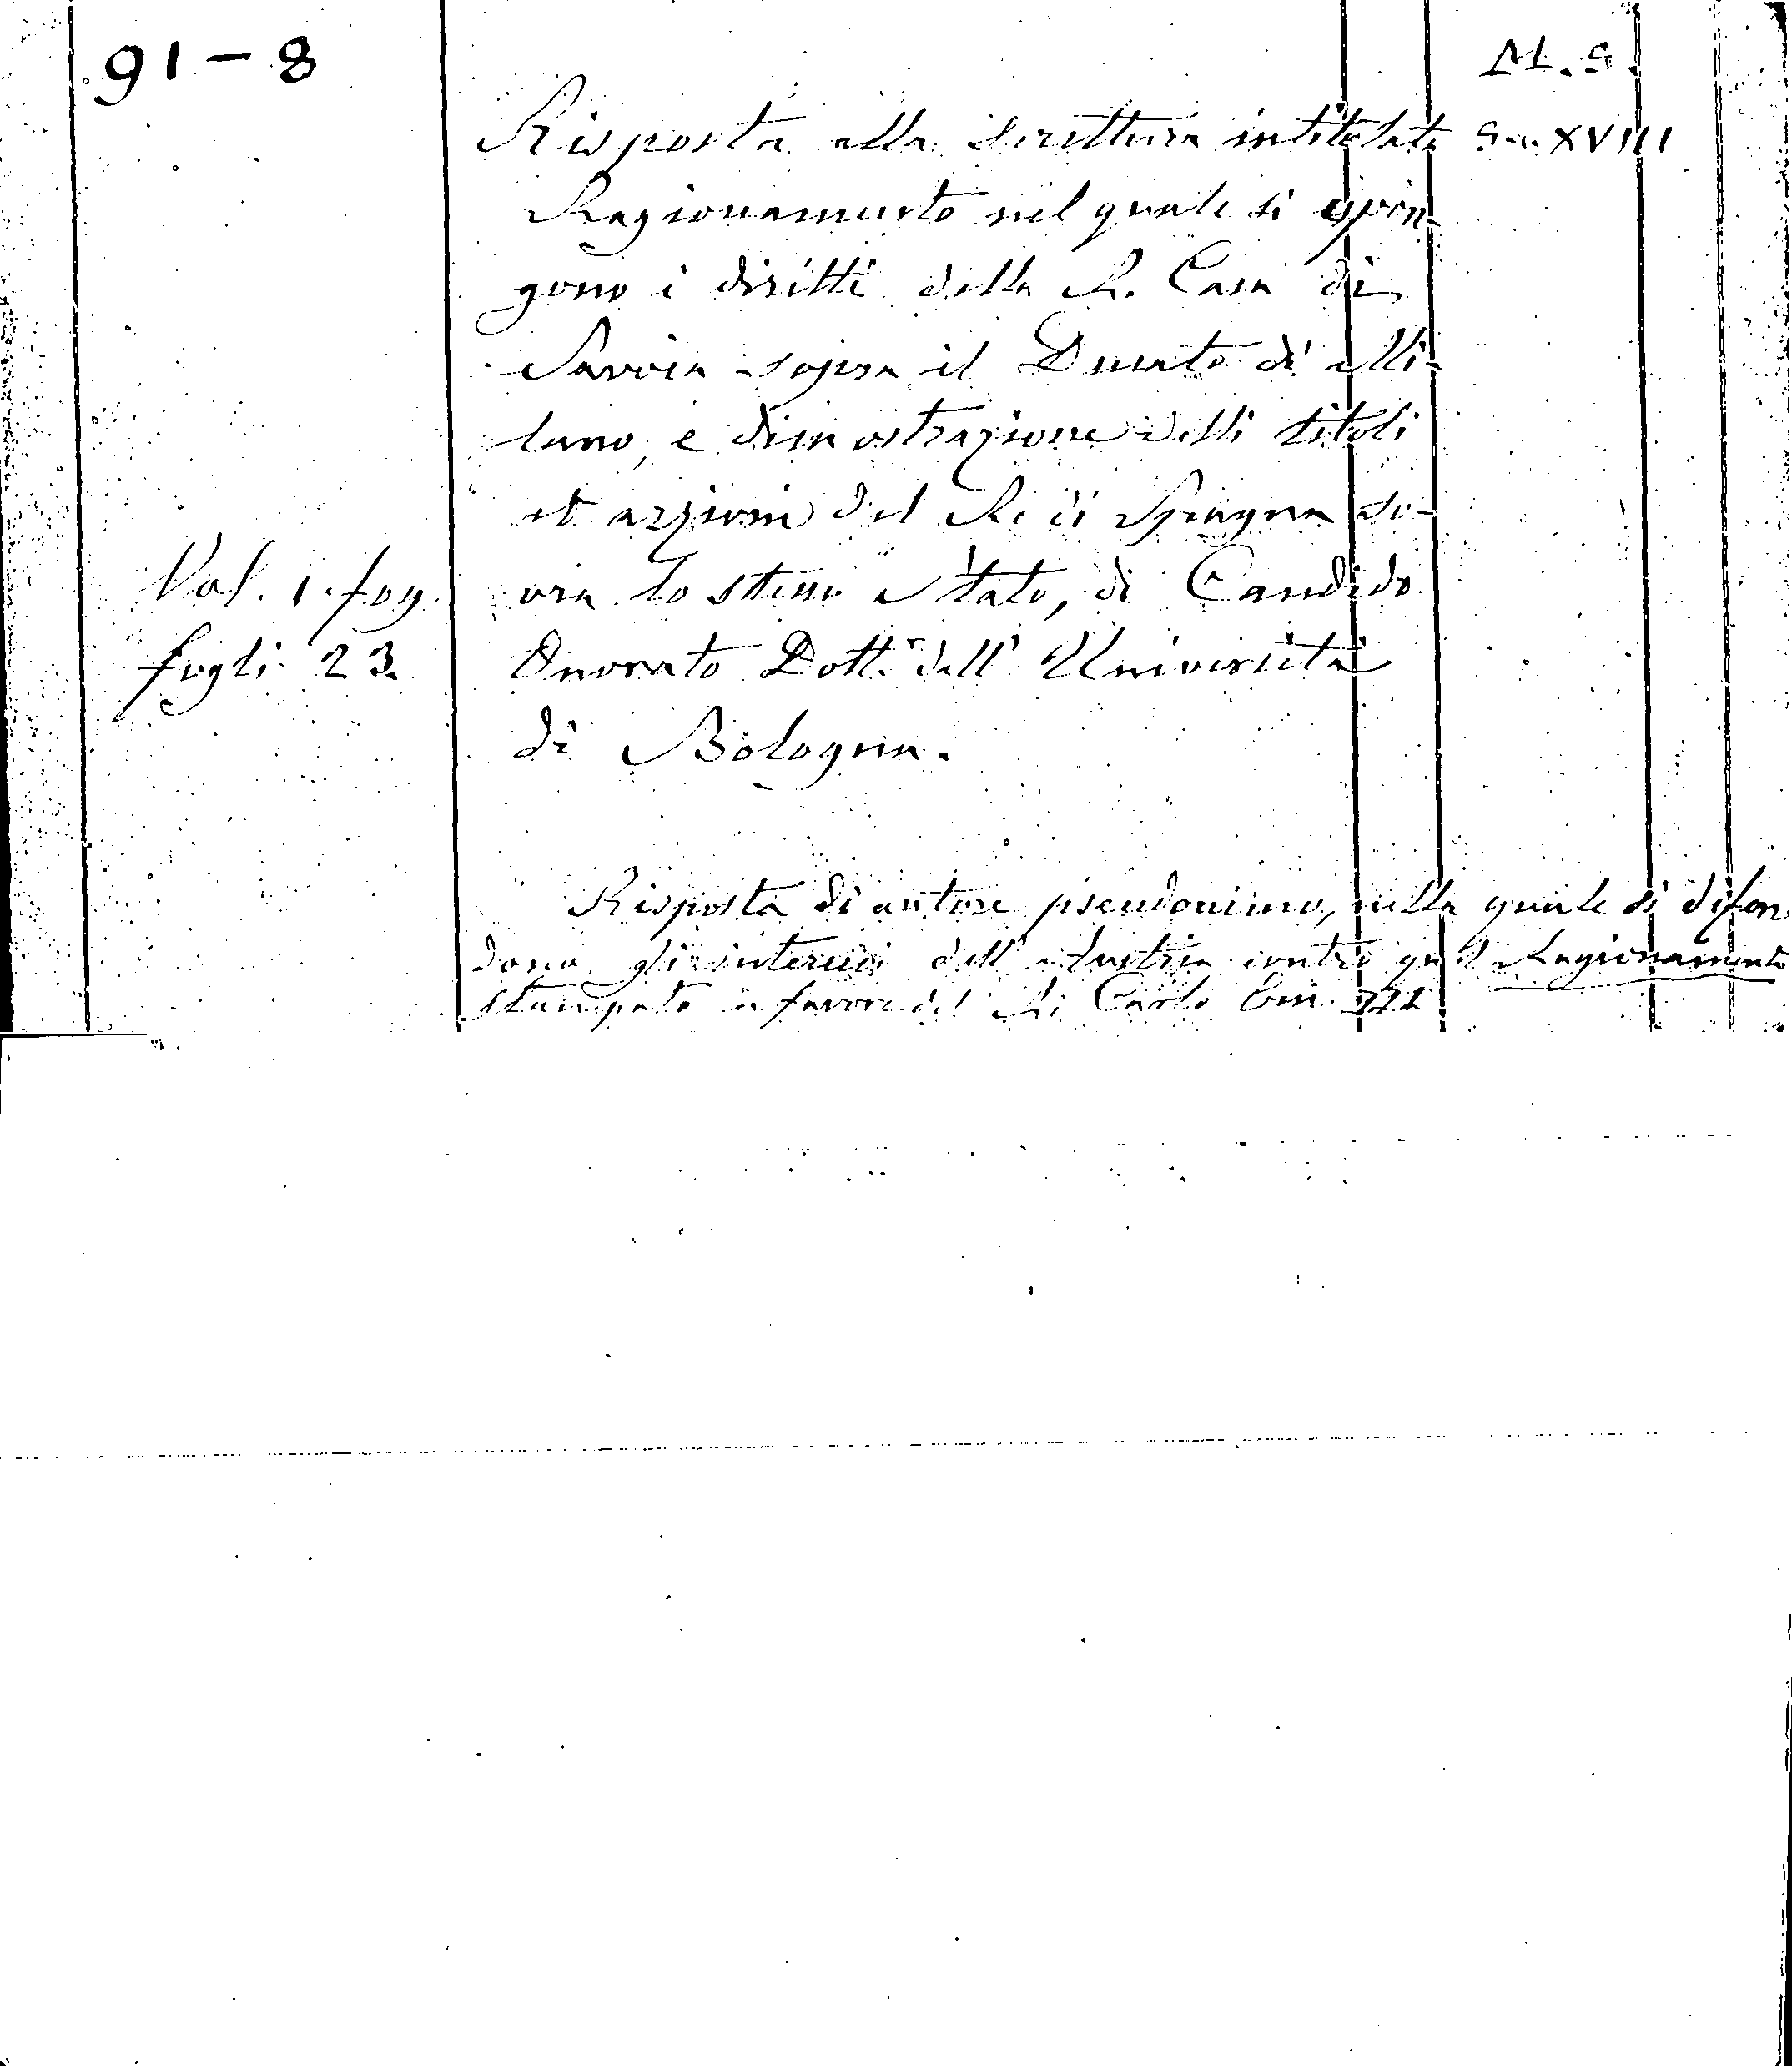 91 - 8
M. S.
Risposta alla Scrittura intitolata Sec. XVIII
Ragionamento nel quale si espon-
gono i diritti della R. Casa di
Savoia sopra il Ducato di Mi-
lano, e dimostrazione delli titoli
et azzioni del Re di Spagna so-
vra lo stesso Stato, di Candido
Onorato Dott. dell' Università
di Bologna.
Vol. 1. fog.
fogli 23.
Risposta di autore pseudonimo, nella quale si difen
dono gli interessi dell' Austria contro quel Ragionamento
stampato a favore del Re Carlo Em. III